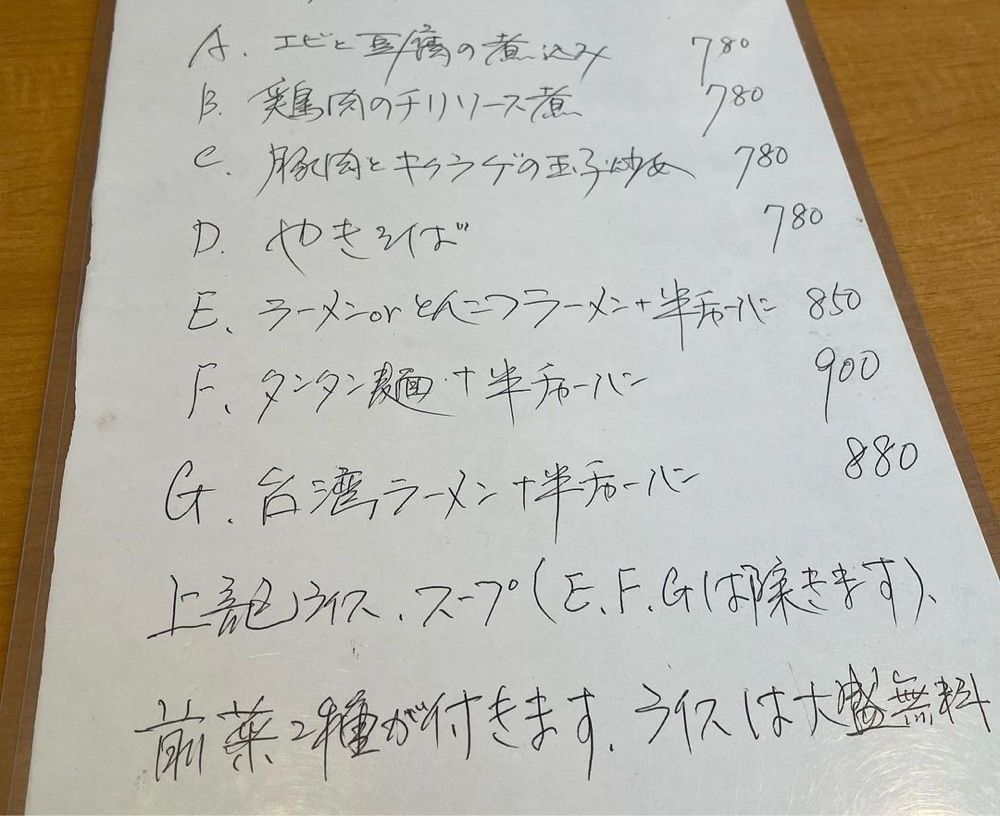 A. エビと豆腐の煮込み 780
B. 鶏肉のチリソース煮 780
C. 豚肉とキクラゲの玉子炒め 780
D. やきそば 780
E. ラーメンorとんこつラーメン+半チャーハン 850
F. タンタン麺+半チャーハン 900
G. 台湾ラーメン+半チャーハン 880
上記ライス、スープ(E.F.Gは除きます)、
前菜2種が付きます。ライスは大盛無料